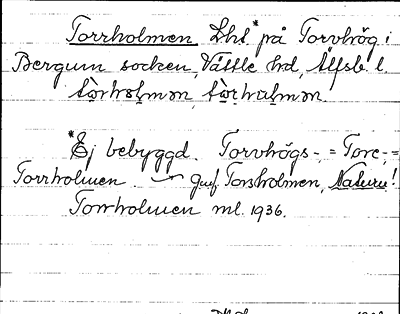 Torrholmen Lht * på Torvhög i
Bergum socken, Vättle hd, Älfsb. l.
tòrhòlmən, tòrhalmən.
* Ej bebyggd. Torvhögs-, = Tore-, =
Torrholmen. Jmf Torsholmen, Naturn!
Torrholmen ml. 1936.